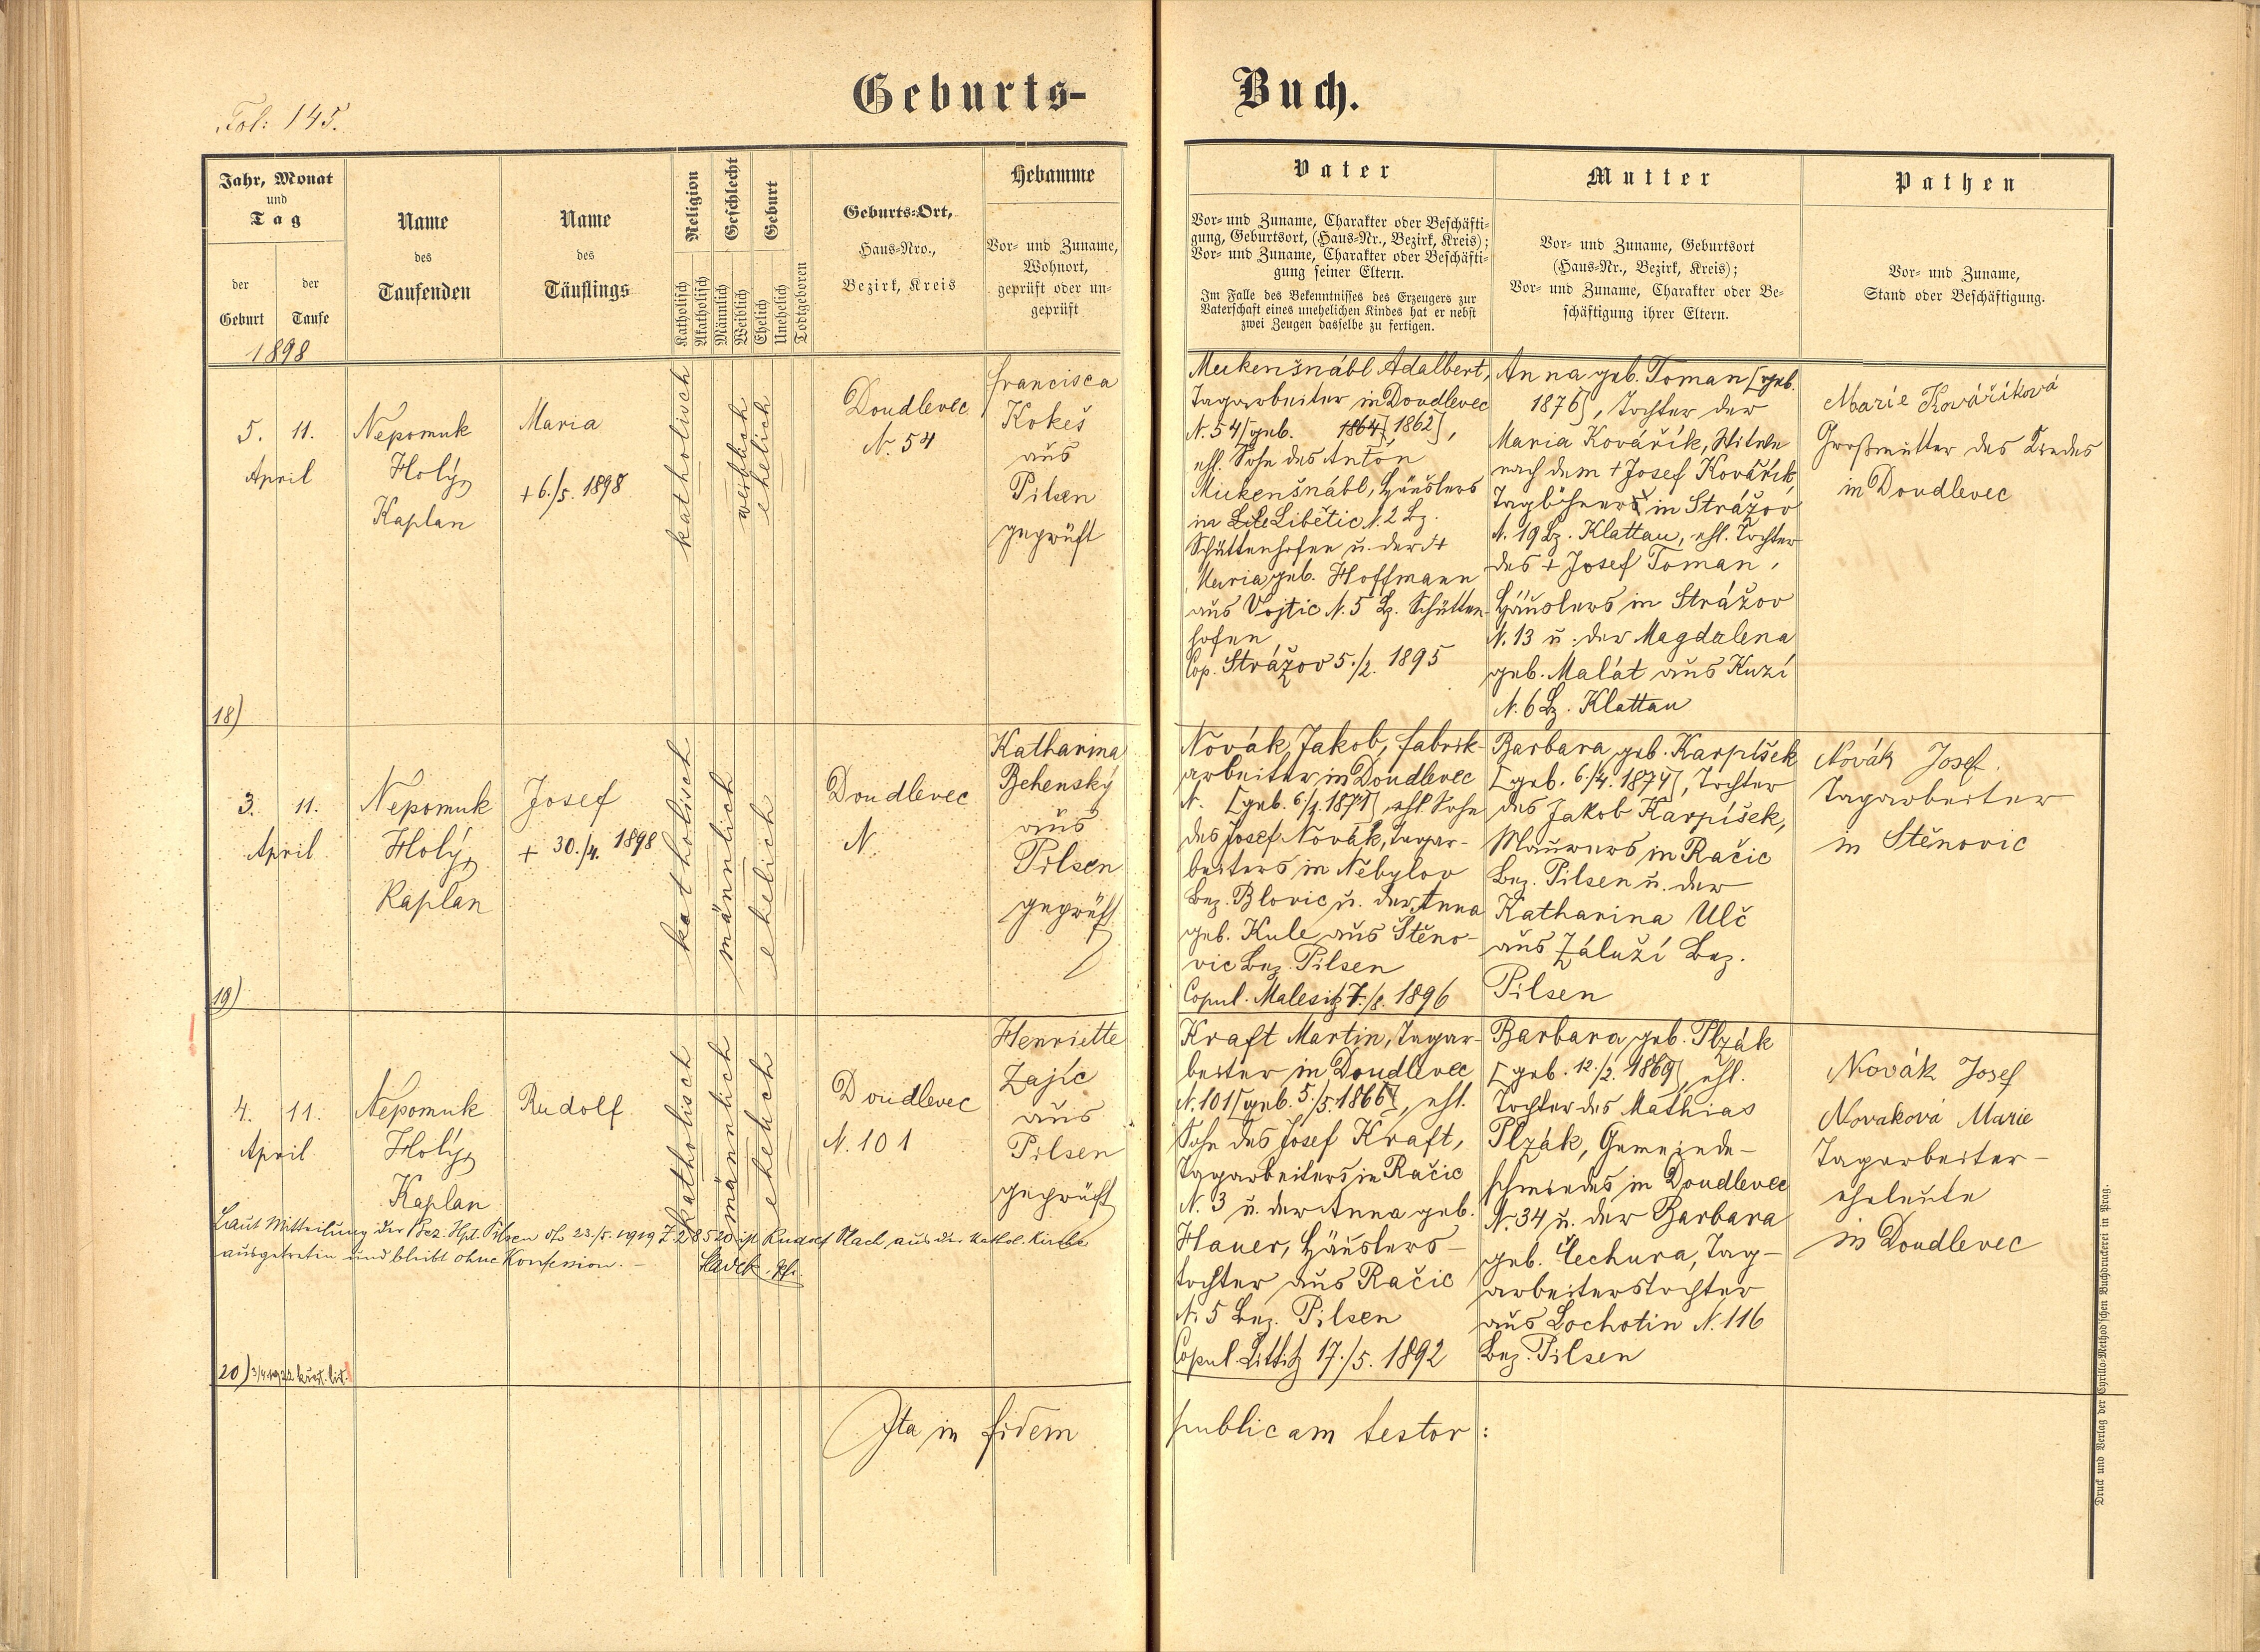 Geburts-
Buch.
Fol: 145.
Jahr, Monat
und
Tag
der
Geburt
der
Taufe
1898
Name
des
Taufenden
Name
des
Täuflings
Religion
Geschlecht
Geburt
Katholisch
Akatholisch
Männlich
Weiblich
Ehelich
Unehelich
Todtgeboren
Geburts-Ort,
Haus-Nro.,
Bezirk, Kreis
Hebamme
Vor- und Zuname,
Wohnort,
geprüft oder un-
geprüft
Vater
Vor- und Zuname, Charakter oder Beschäfti-
gung, Geburtsort, (Haus-Nr., Bezirk, Kreis);
Vor- und Zuname, Charakter oder Beschäfti-
gung seiner Eltern.
Im Falle des Bekenntnisses des Erzeugers zur
Vaterschaft eines unehelichen Kindes hat er nebst
zwei Zeugen dasselbe zu fertigen.
Mutter
Vor- und Zuname, Geburtsort
(Haus-Nr., Bezirk, Kreis);
Vor- und Zuname, Charakter oder Be-
schäftigung ihrer Eltern.
Pathen
Vor- und Zuname,
Stand oder Beschäftigung.
5. 11.
April
18)
Nepomuk
Holý,
Kaplan
Maria
+ 6./5. 1898
katholisch
weiblich
ehelich
Doudlevec
N. 54
Francisca
Kokeš
aus
Pilsen
geprüft
Muckenšnábl Adalbert,
Tagarbeiter in Doudlevec
N. 54 [geb. 1864] 1862],
ehl. Sohn des Anton
Muckenšnábl, Häuslers
in Libětic N. 2 Bz.
Schüttenhofen u. der +
Maria geb. Hoffmann
aus Vojtic N. 5 Bz. Schütten-
hofen
Cop. Strážov 5./2. 1895
Anna geb. Toman [geb.
1876], Tochter der
Maria Kovářík, Witwe
nach dem + Josef Kovářík,
Taglöhners in Strážov
N. 19 Bz. Klattau, ehl. Tochter
des + Josef Toman,
Häuslers in Strážov
N. 13 u. der Magdalena
geb. Malát aus Kuzí
N. 6 Bz. Klattau
Marie Kováříková
Großmutter des Kindes
in Doudlevec
3. 11.
April
19)
Nepomuk
Holý,
Kaplan
Josef
+ 30./4. 1898
katholisch
männlich
ehelich
Doudlevec
N.
Katharina
Behenský
aus
Pilsen
geprüft
Novák Jakob, Fabrik-
arbeiter in Doudlevec
N. [geb. 6./4. 1871], ehl. Sohn
des Josef Novák, Tagar-
beiters in Nebylov
Bez. Blovic u. der Anna
geb. Kule aus Štěno-
vic Bez. Pilsen
Copul. Malesitz 7./8. 1896
Barbara geb. Karpíšek
[geb. 6./4. 1874], Tochter
des Jakob Karpíšek,
Maurers in Račic
Bez. Pilsen u. der
Katharina Ulč
aus Záluží Bez.
Pilsen
Novák Josef
Tagarbeiter
in Stěnovic
4. 11.
April
20) 3/4 1922
Nepomuk
Holý,
Kaplan
Rudolf
katholisch
männlich
ehelich
Doudlevec
N. 101
Henriette
Zajíc
aus
Pilsen
geprüft
Laut Mitteilung der Bez. Hpt. Pilsen 23./5. 1919 Z. 28520 ist Rudolf aus der kathol. Kirche
ausgetreten und bleibt ohne Konfession. –
Kraft Martin, Tagar-
beiter in Doudlevec
N. 101 [geb. 5./5. 1866], ehl.
Sohn des Josef Kraft,
Tagarbeiters in Račic
N. 3 u. der Anna geb.
Hauer, Häuslers-
tochter aus Račic
N. 5 Bez. Pilsen
Copul. Littitz 17./5. 1892
Barbara geb. Plzák
[geb. 12./2. 1869], ehl.
Tochter des Mathias
Plzák, Gemeinde-
schmiedes in Doudlevec
N. 34 u. der Barbara
geb. Čechura, Tag-
arbeiterstochter
aus Lochotin N. 116
Bez. Pilsen
Novák Josef
Novaková Marie
Tagarbeiter-
eheleute
in Doudlevec
Ita in fidem
publicam testor:
Druck und Verlag der Cyrillo-Method'schen Buchdruckerei in Prag.